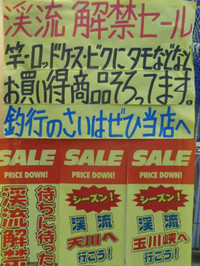 渓流解禁セール
竿・ロッドケース・ビクにタモなどなど
お買い得商品そろってます。
釣行のさいはぜひ当店へ
SALE
PRICE DOWN!
待ちに待った
渓流解禁
SALE
PRICE DOWN!
シーズン!
渓流
天川へ
行こう!
SALE
PRICE DOWN!
シーズン!
渓流
玉川峡へ
行こう!